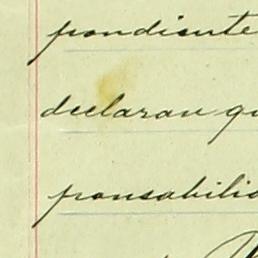 pondiente
declaran qu
ponsabilid